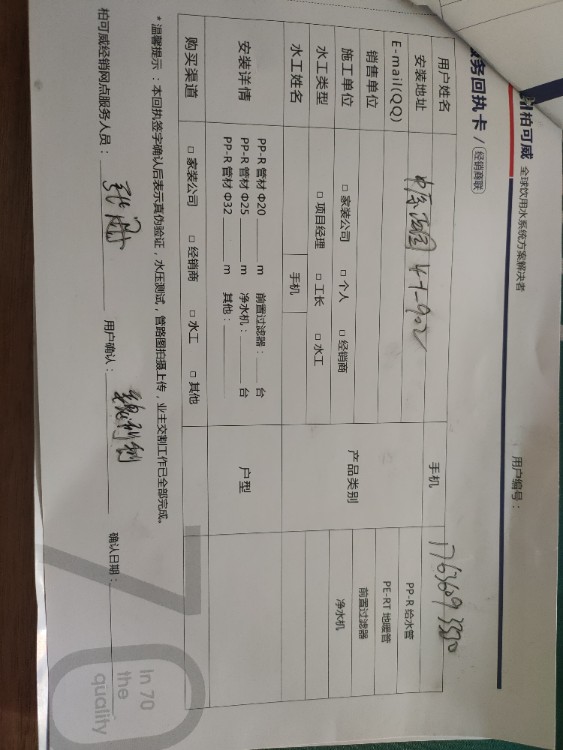 柏可威 全球饮用水系统方案解决者
务回执卡 / 经销商联
用户编号：
用户姓名 手机 17636093330
安装地址 4-1-902
E-mail(QQ) 产品类别 PP-R 给水管
销售单位 PE-RT 地暖管
施工单位 □ 家装公司 □ 个人 □ 经销商 前置过滤器
水工类型 □ 项目经理 □ 工长 □ 水工 净水机
水工姓名 手机
安装详情 PP-R 管材 Φ20 m 前置过滤器： 台 户型
PP-R 管材 Φ25 m 净水机： 台
PP-R 管材 Φ32 m 其他：
购买渠道 □ 家装公司 □ 经销商 □ 水工 □ 其他
* 温馨提示：本回执签字确认后表示真伪验证，水压测试，管路图拍摄上传，业主交割工作已全部完成。
柏可威经销网点服务人员： 用户确认： 确认日期：
In 70
the
quality